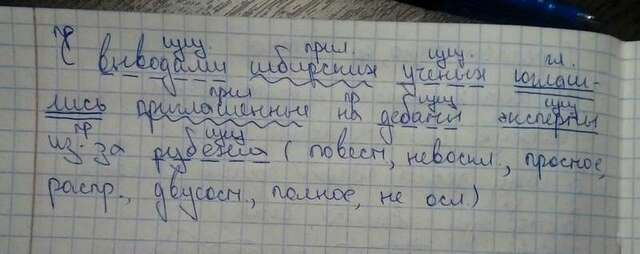 пр. сущ. прил. сущ. гл.
С выводами сибирских учёных соглаш-
прил пр сущ сущ
лись приглашенные на дебаты эксперты
пр сущ
из-за рубежа (повеств, невоскл., простое,
распр., двусост., полное, не осл.)